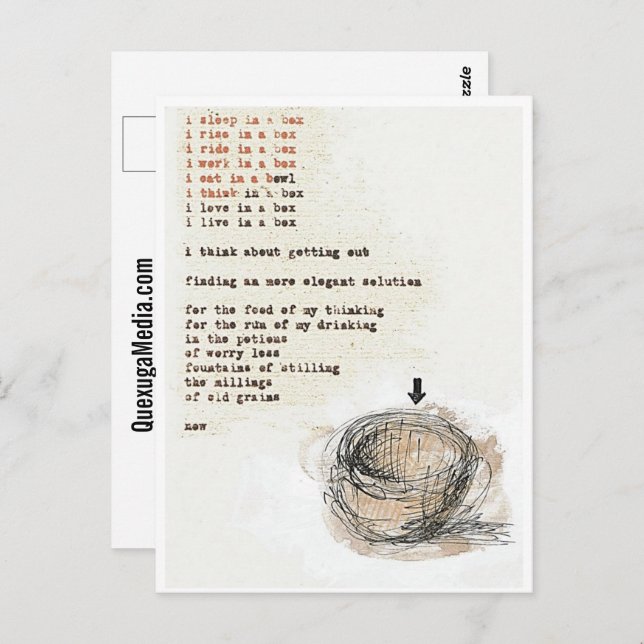 i sleep in a box
i rise in a box
i ride in a box
i work in a box
i eat in a bowl
i think in a box
i love in a box
i live in a box
i think about getting out
finding an more elegant solution
for the food of my thinking
for the rum of my drinking
in the potions
of worry less
fountains of stilling
the millings
of old grains
now
QuexugaMedia.com
zzle